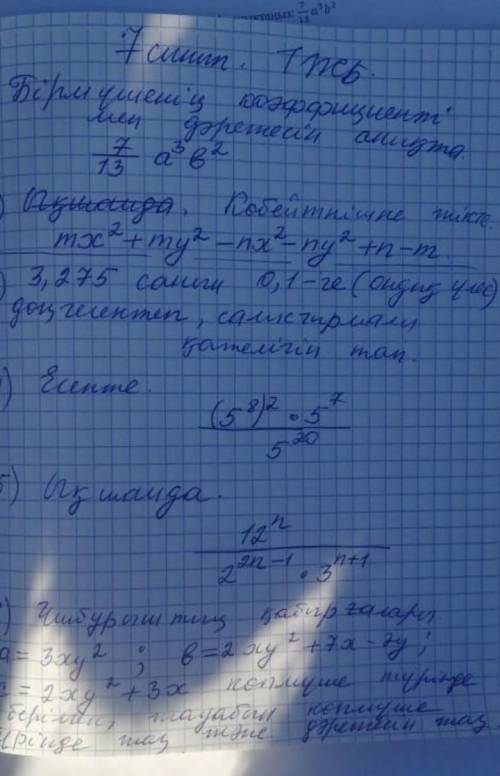 7/13 a³b²
7 сынып. ТЖБ.
Бірмүшенің коэффициенті
мен дәрежесін анықта.
7/13 a³b²
) Ықшамда. Көбейткішке жікте
mx² + my² - nx² - ny² + n - m.
) 3,275 санын 0,1-ге (ондық үлес)
дөңгелектеп, салыстырмалы
қателігін тап.
) Есепте.
(5⁸)² · 5⁷ / 5²⁰
5) Ықшамда.
12ⁿ / 2²ⁿ⁻¹ · 3ⁿ⁺¹
) Үшбұрыштың қабырғалары
a = 3xy² ; b = 2xy² + 7x - 7y ;
c = 2xy² + 3x көпмүше түрінде
берілген, көпмүше
түрінде жаз және дәрежесін жаз